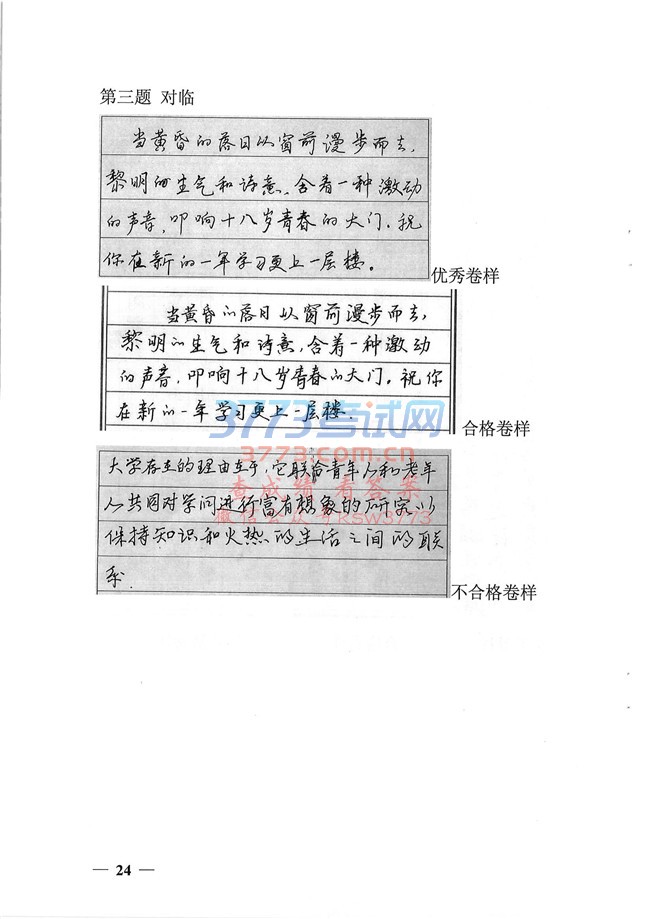 第三题 对临
当黄昏的落日从窗前漫步而去,
黎明的生气和诗意,含着一种激动
的声音,叩响十八岁青春的大门.祝
你在新的一年学习更上一层楼。
优秀卷样
当黄昏的落日从窗前漫步而去,
黎明的生气和诗意,含着一种激动
的声音,叩响十八岁青春的大门。祝你
在新的一年学习更上一层楼.
合格卷样
3773考试网
3773.com.cn
大学存在的理由在于,它联合青年人和老年
人共同对学问进行富有想象的研究,以
保持知识和火热的生活之间的联
系.
查成绩 看答案
微信公众号ksw3773
不合格卷样
— 24 —